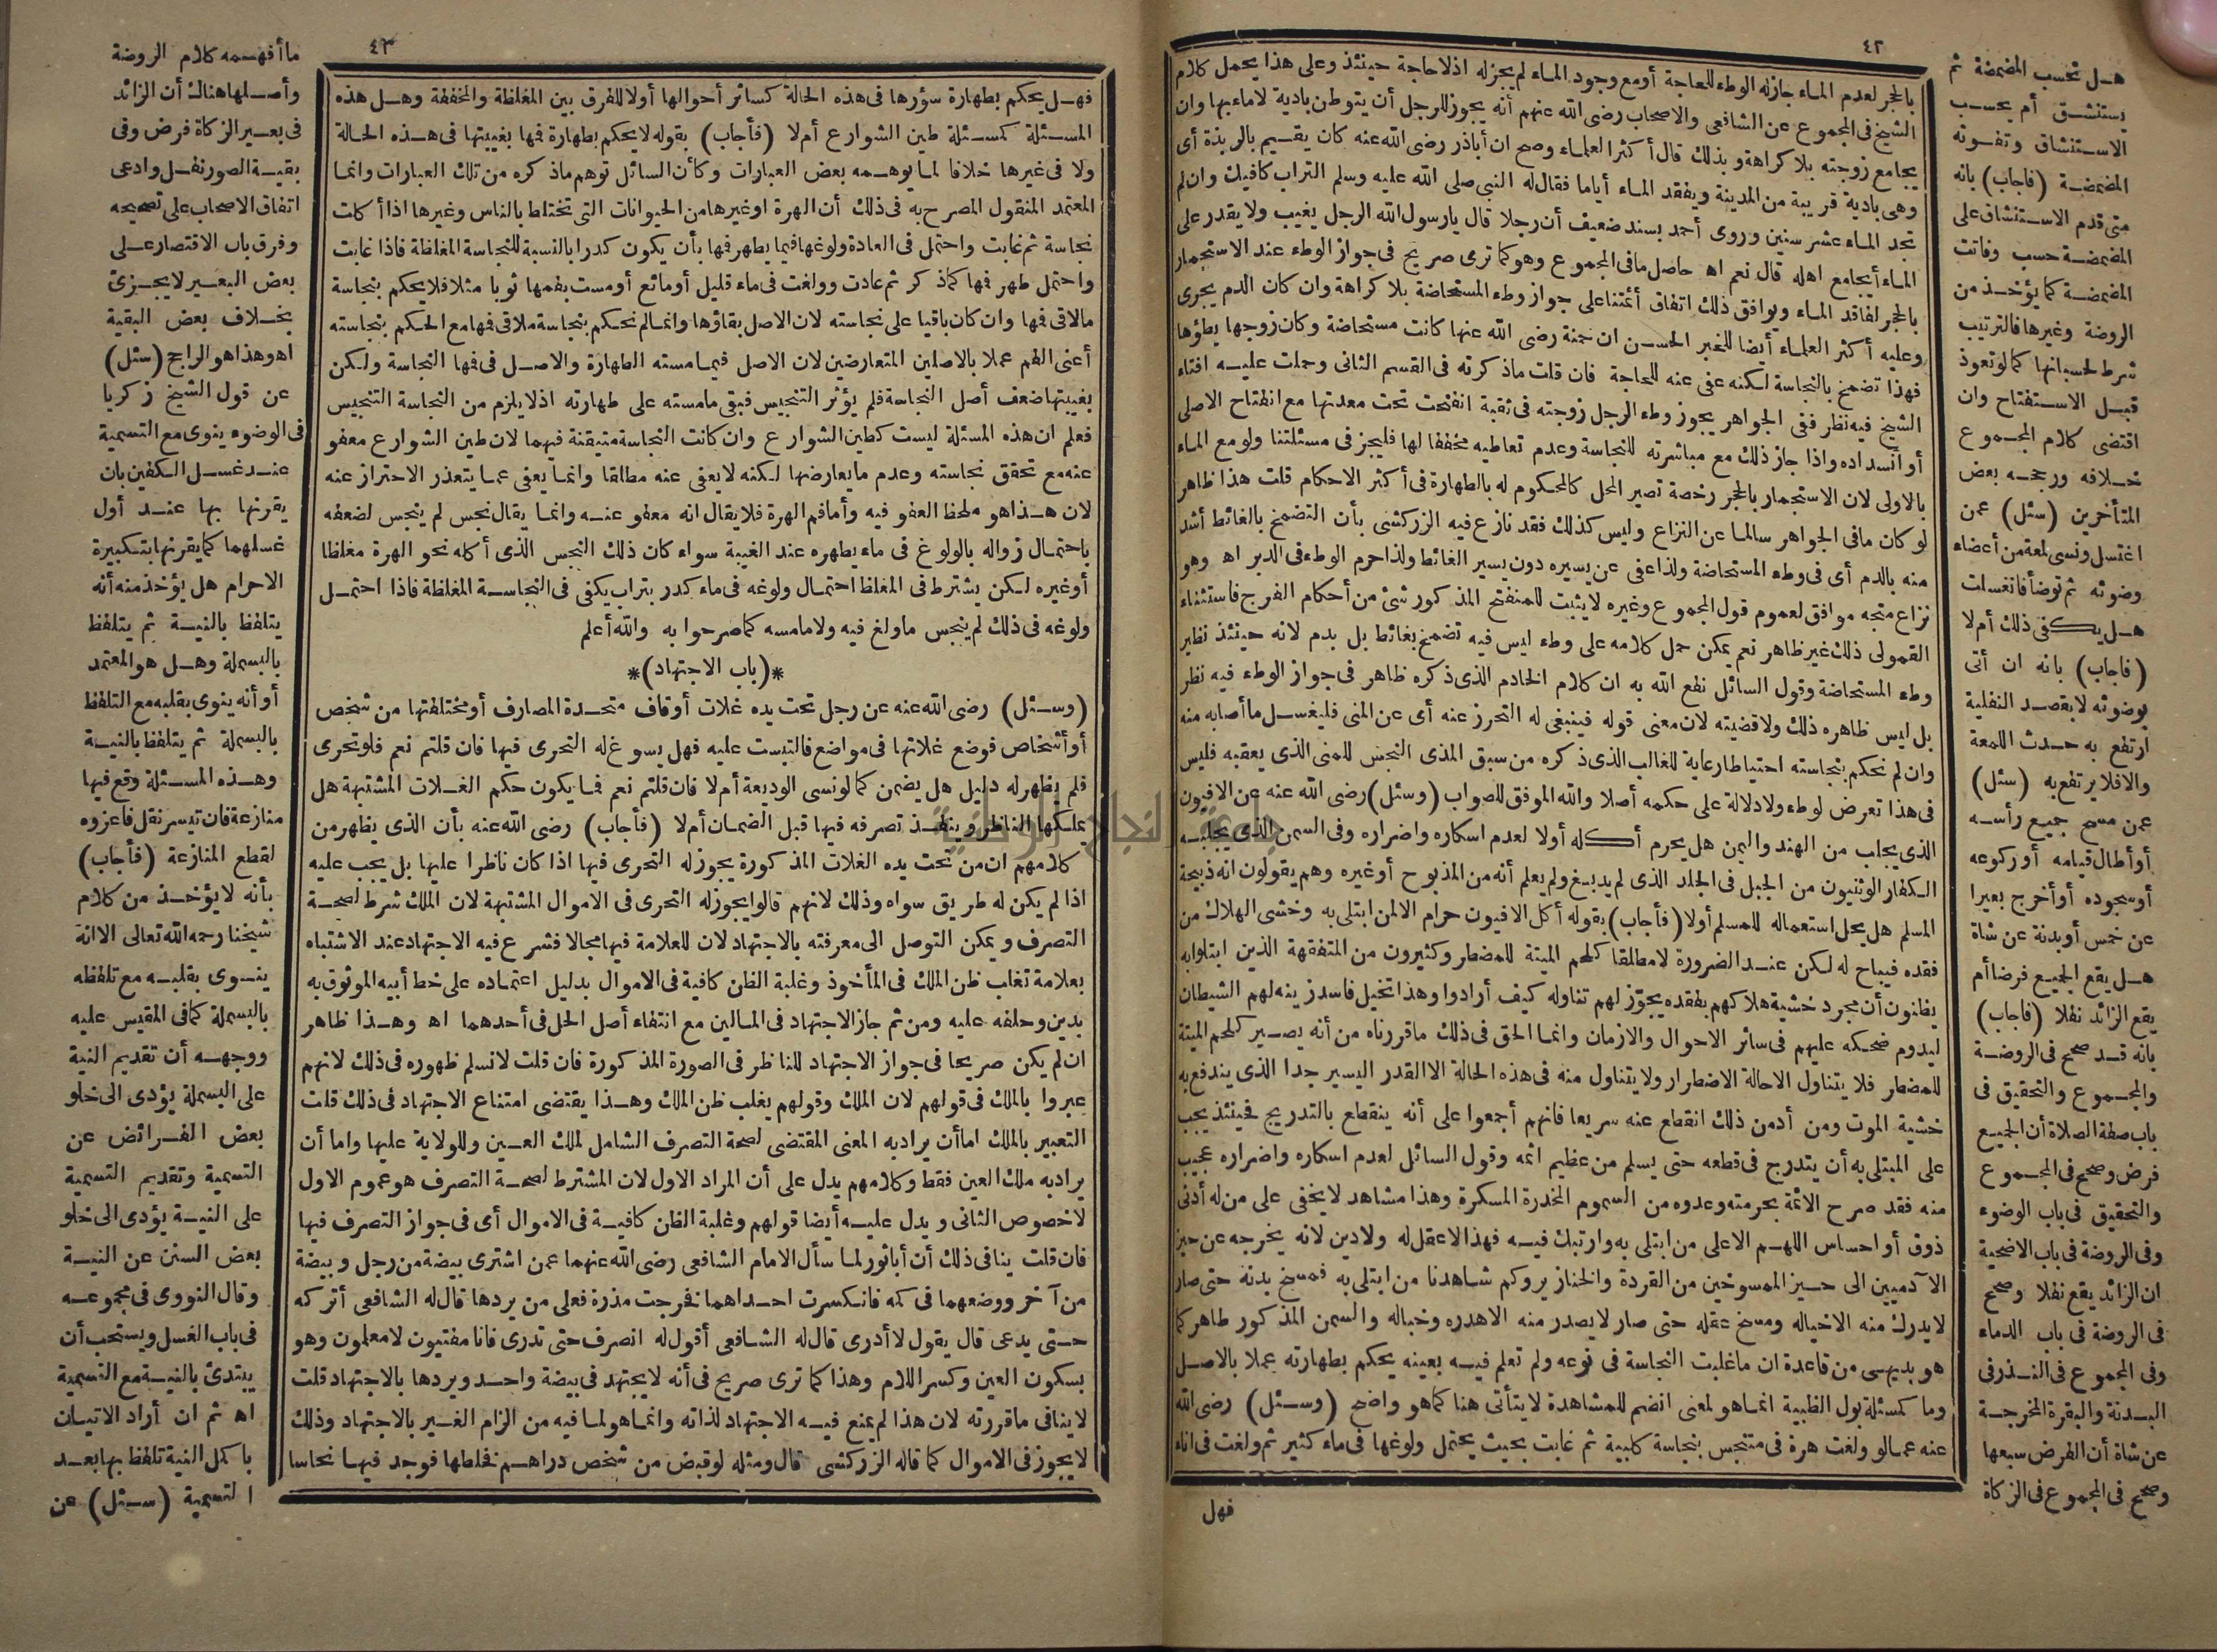 ٤٢
بالحجر لعدم الماء جاز له الوطء للحاجة أو مع وجود الماء لم يجز له اذ لا حاجة حينئذ وعلى هذا يحمل كلام
الشيخ فى المجموع عن الشافعى والاصحاب رضى الله عنهم أنه يجوز للرجل أن يتوطن بادية لا ماء بها وان
يجامع زوجته بلا كراهة وبذلك قال أكثر العلماء وصح ان أباذر رضى الله عنه كان يقيم بالربذة أى
وهى بادية قريبة من المدينة ويفقد الماء أياما فقال له النبى صلى الله عليه وسلم التراب كافيك وان لم
تجد الماء عشر سنين وروى أحمد بسند ضعيف أن رجلا قال يارسول الله الرجل يغيب ولا يقدر على
الماء أيجامع اهله قال نعم اه حاصل ما فى المجموع وهو كما ترى صريح فى جواز الوطء عند الاستجمار
بالحجر لفاقد الماء ويوافق ذلك اتفاق أئمتنا على جواز وطء المستحاضة بلا كراهة وان كان الدم يجرى
وعليه أكثر العلماء أيضا للخبر الحسن ان حمنة رضى الله عنها كانت مستحاضة وكان زوجها يطؤها
فهذا تضمخ بالنجاسة لكنه عفى عنه للحاجة فان قلت ما ذكرته فى القسم الثانى وحملت عليه افتاء
الشيخ فيه نظر ففى الجواهر يجوز وطء الرجل زوجته فى ثقبة انفتحت تحت معدتها مع انفتاح الاصلى
أو انسداده واذا جاز ذلك مع مباشرته للنجاسة وعدم تعاطيه مخففا لها فليجز فى مسئلتنا ولو مع الماء
بالاولى لان الاستجمار بالحجر رخصة تصير المحل كالمحكوم له بالطهارة فى أكثر الاحكام قلت هذا ظاهر
لو كان ما فى الجواهر سالما عن النزاع وليس كذلك فقد نازع فيه الزركشى بأن التضمخ بالغائط أشد
منه بالدم أى فى وطء المستحاضة ولذا عفى عن يسيره دون يسير الغائط ولذا حرم الوطء فى الدبر اه وهو
نزاع متجه موافق لعموم قول المجموع وغيره لا يثبت للمنفتح المذكور شئ من أحكام الفرج فاستثناء
القمولى ذلك غير ظاهر نعم يمكن حمل كلامه على وطء ليس فيه تضمخ بغائط بل بدم لانه حينئذ نظير
وطء المستحاضة وقول السائل نفع الله به ان كلام الخادم الذى ذكره ظاهر فى جواز الوطء فيه نظر
بل ليس ظاهره ذلك ولا قضيته لان معنى قوله فينبغى له التحرز عنه أى عن المنى فليغسل ما أصابه منه
وان لم نحكم بنجاسته احتياطا رعاية للغالب الذى ذكره من سبق المذى النجس للمنى الذى يعقبه فليس
فى هذا تعرض لوطء ولا دلالة على حكمه أصلا والله الموفق للصواب (وسئل) رضى الله عنه عن الافيون
الذى يجلب من الهند واليمن هل يحرم أكله أولا لعدم اسكاره واضراره وفى السمن الذى يجلبه
الكفار الوثنيون من الجبل فى الجلد الذى لم يدبغ ولم يعلم أنه من المذبوح أو غيره وهم يقولون انه ذبيحة
المسلم هل يحل استعماله للمسلم أولا (فأجاب) بقوله أكل الافيون حرام الا لمن ابتلى به وخشى الهلاك من
فقده فيباح له لكن عند الضرورة لا مطلقا كلحم الميتة للمضطر وكثيرون من المتفقهة الذين ابتلوا به
يظنون أن مجرد خشية هلاكهم بفقده يجوز لهم تناوله كيف أرادوا وهذا تخيل فاسد زينه لهم الشيطان
ليدوم ضحكه عليهم فى سائر الاحوال والازمان وانما الحق فى ذلك ما قررناه من أنه يصير كلحم الميتة
للمضطر فلا يتناول الا حالة الاضطرار ولا يتناول منه فى هذه الحالة الا القدر اليسير جدا الذى يندفع به
خشية الموت ومن أدمن ذلك انقطع عنه سريعا فانهم أجمعوا على أنه ينقطع بالتدريج فحينئذ يجب
على المبتلى به أن يتدرج فى قطعه حتى يسلم من عظيم اثمه وقول السائل لعدم اسكاره واضراره عجيب
منه فقد صرح الائمة بحرمته وعدوه من السموم المخدرة المسكرة وهذا مشاهد لا يخفى على من له أدنى
ذوق أو احساس اللهم الا على من ابتلى به وارتبك فيه فهذا لا عقل له ولا دين لانه يخرجه عن حيز
الآدميين الى حيز الممسوخين من القردة والخنازير وكم شاهدنا من ابتلى به فمسخ بدنه حتى صار
لا يدرك منه الا خياله ومسخ عقله حتى صار لا يصدر منه الا هدره وخباله والسمن المذكور طاهر كما
هو بديهى من قاعدة ان ما غلبت النجاسة فى نوعه ولم تعلم فيه بعينه يحكم بطهارته عملا بالاصل
وما كمسئلة بول الظبية انما هو لمعنى انضم للمشاهدة لا يتأتى هنا كما هو واضح (وسئل) رضى الله
عنه عما لو ولغت هرة فى متنجس بنجاسة كلبية ثم غابت بحيث يحتمل ولوغها فى ماء كثير ثم ولغت فى اناء
فهل
هل تحسب المضمضة ثم
يستنشق أم يحسب
الاستنشاق وتفوته
المضمضة (فاجاب) بانه
متى قدم الاستنشاق على
المضمضة حسب وفاتت
المضمضة كما يؤخذ من
الروضة وغيرها فالترتيب
شرط لحسبانها كما لو تعوذ
قبل الاستفتاح وان
اقتضى كلام المجموع
خلافه ورجحه بعض
المتأخرين (سئل) عمن
اغتسل ونسى لمعة من أعضاء
وضوئه ثم توضأ فانغسلت
هل يكفى ذلك أم لا
(فاجاب) بانه ان أتى
بوضوئه لا بقصد النفلية
ارتفع به حدث اللمعة
والا فلا يرتفع به (سئل)
عمن مسح جميع رأسه
أو أطال قيامه أو ركوعه
أو سجوده أو أخرج بعيرا
عن خمس أو بدنة عن شاة
هل يقع الجميع فرضا أم
يقع الزائد نفلا (فاجاب)
بانه قد صحح فى الروضة
والمجموع والتحقيق فى
باب صفة الصلاة أن الجميع
فرض وصحح فى المجموع
والتحقيق فى باب الوضوء
وفى الروضة فى باب الاضحية
ان الزائد يقع نفلا وصحح
فى الروضة فى باب الدماء
وفى المجموع فى النذر فى
البدنة والبقرة المخرجة
عن شاة أن الفرض سبعها
وصحح فى المجموع فى الزكاة
٤٣
فهل يحكم بطهارة سؤرها فى هذه الحالة كسائر أحوالها أولا للفرق بين المغلظة والمخففة وهل هذه
المسئلة كمسئلة طين الشوارع أم لا (فأجاب) بقوله لا يحكم بطهارة فمها بغيبتها فى هذه الحالة
ولا فى غيرها خلافا لما يوهمه بعض العبارات وكأن السائل توهم ما ذكره من تلك العبارات وانما
المعتمد المنقول المصرح به فى ذلك أن الهرة او غيرها من الحيوانات التى تختلط بالناس وغيرها اذا أكلت
نجاسة ثم غابت واحتمل فى العادة ولوغها فيما يطهر فمها بأن يكون كدرا بالنسبة للنجاسة المغلظة فاذا غابت
واحتمل طهر فمها كما ذكر ثم عادت وولغت فى ماء قليل أو مائع أو مست بفمها ثوبا مثلا فلا يحكم بنجاسة
ما لاقى فمها وان كان باقيا على نجاسته لان الاصل بقاؤها وانما لم نحكم بنجاسة ملاقى فمها مع الحكم بنجاسته
أعنى الفم عملا بالاصلين المتعارضين لان الاصل فيما مسته الطهارة والاصل فى فمها النجاسة ولكن
بغيبتها ضعف أصل النجاسة فلم يؤثر التنجيس فبقى ما مسته على طهارته اذ لا يلزم من النجاسة التنجيس
فعلم ان هذه المسئلة ليست كطين الشوارع وان كانت النجاسة متيقنة فيهما لان طين الشوارع معفو
عنه مع تحقق نجاسته وعدم ما يعارضها لكنه لا يعفى عنه مطلقا وانما يعفى عما يتعذر الاحتراز عنه
لان هذا هو ملحظ العفو فيه وأما فم الهرة فلا يقال انه معفو عنه وانما يقال نجس لم ينجس لضعفه
باحتمال زواله بالولوغ فى ماء يطهره عند الغيبة سواء كان ذلك النجس الذى أكله نحو الهرة مغلظا
أو غيره لكن يشترط فى المغلظ احتمال ولوغه فى ماء كدر بتراب يكفى فى النجاسة المغلظة فاذا احتمل
ولوغه فى ذلك لم ينجس ما ولغ فيه ولا ما مسه كما صرحوا به والله أعلم
*(باب الاجتهاد)*
(وسئل) رضى الله عنه عن رجل تحت يده غلات أوقاف متحدة المصارف أو مختلفتها من شخص
أو أشخاص فوضع غلاتها فى مواضع فالتبست عليه فهل يسوغ له التحرى فيها فان قلتم نعم فلو تحرى
فلم يظهر له دليل هل يضمن كما لو نسى الوديعة أم لا فان قلتم نعم فما يكون حكم الغلات المشتبهة هل
يملكها الناظر وينفذ تصرفه فيها قبل الضمان أم لا (فأجاب) رضى الله عنه بأن الذى يظهر من
كلامهم ان من تحت يده الغلات المذكورة يجوز له التحرى فيها اذا كان ناظرا عليها بل يجب عليه
اذا لم يكن له طريق سواه وذلك لانهم قالوا يجوز له التحرى فى الاموال المشتبهة لان الملك شرط لصحة
التصرف ويمكن التوصل الى معرفته بالاجتهاد لان للعلامة فيها مجالا فشرع فيه الاجتهاد عند الاشتباه
بعلامة تغلب ظن الملك فى المأخوذ وغلبة الظن كافية فى الاموال بدليل اعتماده على خط أبيه الموثوق به
بدين وحلفه عليه ومن ثم جاز الاجتهاد فى المالين مع انتفاء أصل الحل فى أحدهما اه وهذا ظاهر
ان لم يكن صريحا فى جواز الاجتهاد للناظر فى الصورة المذكورة فان قلت لا نسلم ظهوره فى ذلك لانهم
عبروا بالملك فى قولهم لان الملك وقولهم يغلب ظن الملك وهذا يقتضى امتناع الاجتهاد فى ذلك قلت
التعبير بالملك اما أن يراد به المعنى المقتضى لصحة التصرف الشامل لملك العين وللولاية عليها واما أن
يراد به ملك العين فقط وكلامهم يدل على أن المراد الاول لان المشترط لصحة التصرف هو عموم الاول
لا خصوص الثانى ويدل عليه أيضا قولهم وغلبة الظن كافية فى الاموال أى فى جواز التصرف فيها
فان قلت ينافى ذلك أن أباثور لما سأل الامام الشافعى رضى الله عنهما عمن اشترى بيضة من رجل وبيضة
من آخر ووضعهما فى كمه فانكسرت احداهما فخرجت مذرة فعلى من يردها قال له الشافعى أتركه
حتى يدعى قال يقول لا أدرى قال له الشافعى أقول له انصرف حتى تدرى فانا مفتيون لا معلمون وهو
بسكون العين وكسر اللام وهذا كما ترى صريح فى أنه لا يجتهد فى بيضة واحد ويردها بالاجتهاد قلت
لا ينافى ما قررته لان هذا لم يمنع فيه الاجتهاد لذاته وانما هو لما فيه من الزام الغير بالاجتهاد وذلك
لا يجوز فى الاموال كما قاله الزركشى قال ومثله لو قبض من شخص دراهم فخلطها فوجد فيها نحاسا
ما أفهمه كلام الروضة
وأصلها هناك أن الزائد
فى بعير الزكاة فرض وفى
بقية الصور نفل وادعى
اتفاق الاصحاب على تصحيحه
وفرق بان الاقتصار على
بعض البعير لا يجزئ
بخلاف بعض البقية
اه وهذا هو الراجح (سئل)
عن قول الشيخ زكريا
فى الوضوء ينوى مع التسمية
عند غسل الكفين بان
يقرنها بها عند أول
غسلهما كما يقرنها بتكبيرة
الاحرام هل يؤخذ منه أنه
يتلفظ بالنية ثم يتلفظ
بالبسملة وهل هو المعتمد
أو أنه ينوى بقلبه مع التلفظ
بالبسملة ثم يتلفظ بالنية
وهذه المسئلة وقع فيها
منازعة فان تيسر نقل فاعزوه
لقطع المنازعة (فأجاب)
بأنه لا يؤخذ من كلام
شيخنا رحمه الله تعالى الا انه
ينوى بقلبه مع تلفظه
بالبسملة كما فى المقيس عليه
ووجهه أن تقديم النية
على البسملة يؤدى الى خلو
بعض الفرائض عن
التسمية وتقديم التسمية
على النية يؤدى الى خلو
بعض السنن عن النية
وقال النووى فى مجموعه
فى باب الغسل ويستحب أن
يبتدئ بالنية مع التسمية
اه ثم ان أراد الاتيان
باكمل النية تلفظ بها بعد
التسمية (سئل) عن
جامعة النجاح الوطنية